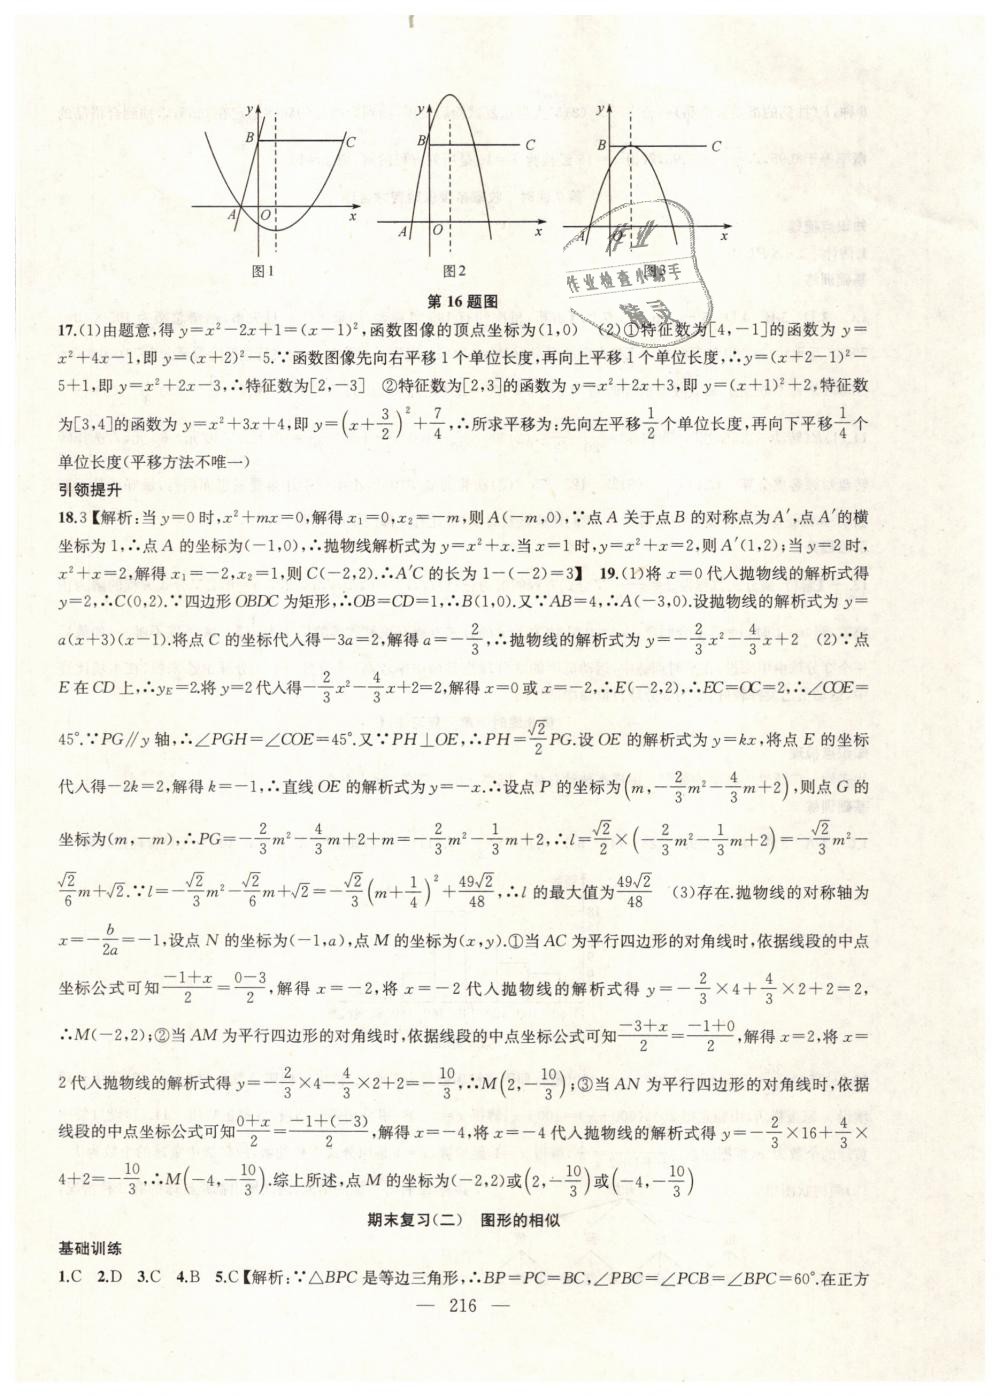 y
B
C
A
O
x
图1
y
B
C
A
O
x
图2
y
B
C
A
x
图3
作业
作业检查小助手
精灵
第16题图
17.(1)由题意,得 y=x²-2x+1=(x-1)²,函数图像的顶点坐标为(1,0) (2)①特征数为[4,-1]的函数为 y=
x²+4x-1,即 y=(x+2)²-5.∵函数图像先向右平移1个单位长度,再向上平移1个单位长度,∴y=(x+2-1)²-
5+1,即 y=x²+2x-3,∴特征数为[2,-3] ②特征数为[2,3]的函数为 y=x²+2x+3,即 y=(x+1)²+2,特征数
为[3,4]的函数为 y=x²+3x+4,即 y=(x+3/2)²+7/4,∴所求平移为:先向左平移1/2个单位长度,再向下平移1/4个
单位长度(平移方法不唯一)
引领提升
18.3【解析:当 y=0时,x²+mx=0,解得 x₁=0,x₂=-m,则 A(-m,0),∵点 A 关于点 B 的对称点为 A′,点 A′的横
坐标为1,∴点 A 的坐标为(-1,0),∴抛物线解析式为 y=x²+x.当 x=1时,y=x²+x=2,则 A′(1,2);当 y=2时,
x²+x=2,解得 x₁=-2,x₂=1,则 C(-2,2).∴A′C 的长为 1-(-2)=3】 19.(1)将 x=0代入抛物线的解析式得
y=2,∴C(0,2).∵四边形 OBDC 为矩形,∴OB=CD=1,∴B(1,0).又∵AB=4,∴A(-3,0).设抛物线的解析式为 y=
a(x+3)(x-1).将点 C 的坐标代入得-3a=2,解得 a=-2/3,∴抛物线的解析式为 y=-2/3x²-4/3x+2 (2)∵点
E 在 CD 上,∴y_E=2.将 y=2代入得-2/3x²-4/3x+2=2,解得 x=0或 x=-2,∴E(-2,2),∴EC=OC=2,∴∠COE=
45°.∵PG∥y 轴,∴∠PGH=∠COE=45°.又∵PH⊥OE,∴PH=√2/2PG.设 OE 的解析式为 y=kx,将点 E 的坐标
代入得-2k=2,解得 k=-1,∴直线 OE 的解析式为 y=-x.∴设点 P 的坐标为(m,-2/3m²-4/3m+2),则点 G 的
坐标为(m,-m),∴PG=-2/3m²-4/3m+2+m=-2/3m²-1/3m+2,∴l=√2/2×(-2/3m²-1/3m+2)=-√2/3m²-
√2/6m+√2.∵l=-√2/3m²-√2/6m+√2=-√2/3(m+1/4)²+49√2/48,∴l 的最大值为49√2/48 (3)存在.抛物线的对称轴为
x=-b/2a=-1,设点 N 的坐标为(-1,a),点 M 的坐标为(x,y).①当 AC 为平行四边形的对角线时,依据线段的中点
坐标公式可知(-1+x)/2=(0-3)/2,解得 x=-2,将 x=-2代入抛物线的解析式得 y=-2/3×4+4/3×2+2=2,
∴M(-2,2);②当 AM 为平行四边形的对角线时,依据线段的中点坐标公式可知(-3+x)/2=(-1+0)/2,解得 x=2,将 x=
2代入抛物线的解析式得 y=-2/3×4-4/3×2+2=-10/3,∴M(2,-10/3);③当 AN 为平行四边形的对角线时,依据
线段的中点坐标公式可知(0+x)/2=(-1+(-3))/2,解得 x=-4,将 x=-4代入抛物线的解析式得 y=-2/3×16+4/3×
4+2=-10/3,∴M(-4,-10/3).综上所述,点 M 的坐标为(-2,2)或(2,-10/3)或(-4,-10/3)
期末复习(二) 图形的相似
基础训练
1.C 2.D 3.C 4.B 5.C【解析:∵△BPC 是等边三角形,∴BP=PC=BC,∠PBC=∠PCB=∠BPC=60°.在正方
— 216 —